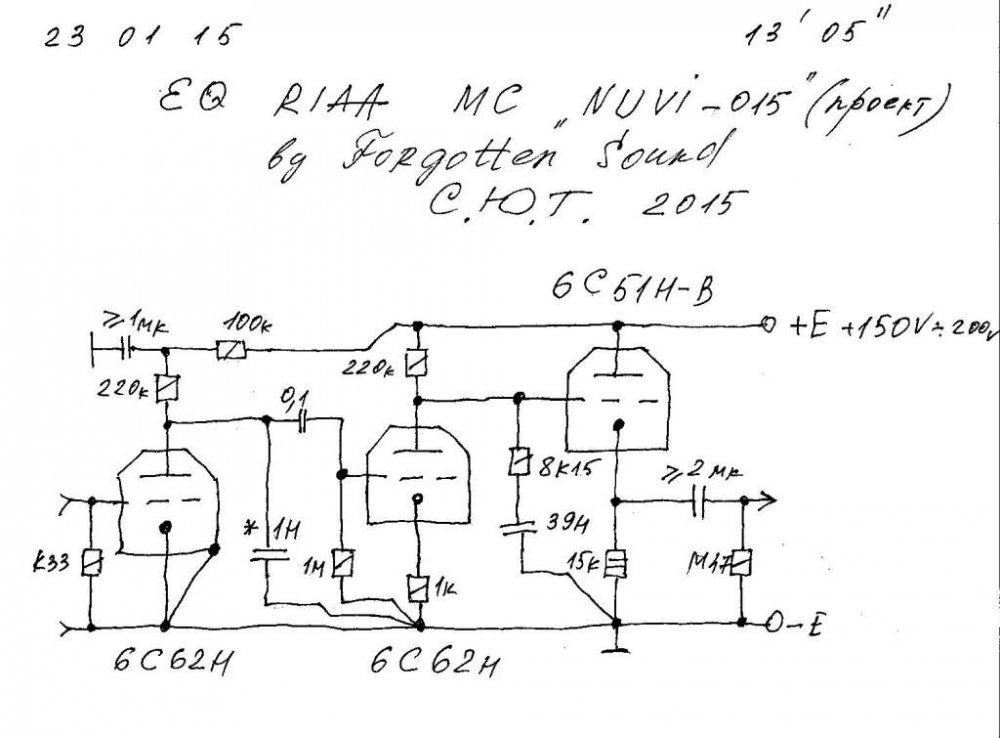 23 01 15
13' 05"
EQ RIAA MC „NUVi-015" (проект)
by Forgotten Sound
С.Ю.Т. 2015
6С51Н-В
≥1мк
100к
+E +150V÷200V
220к
220к
0,1
8К15
≥2мк
* 1Н
39Н
К33
1М
1к
15к
М47
-E
6С62Н
6С62Н